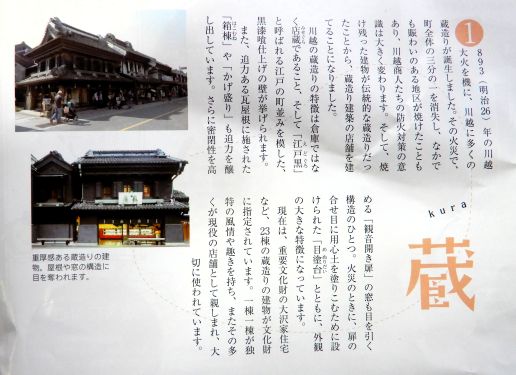 蔵
kura
1893(明治26)年の川越
大火を機に、川越に多くの
蔵造りが誕生しました。その火災で、
町全体の三分の一を消失し、なかで
も賑わいのある地区が焼けたことも
あり、川越商人たちの防火対策の意
識は大きく変わります。そして、焼
け残った建物が伝統的な蔵造りだっ
たことから、蔵造り建築の店舗を建
てることになりました。
川越の蔵造りの特徴は倉庫ではな
く店蔵であること、そして「江戸黒」
と呼ばれる江戸の町並みを模した、
黒漆喰仕上げの壁が挙げられます。
また、迫力ある瓦屋根に施された
「箱棟」や「かげ盛り」も迫力を醸
し出しています。さらに密閉性を高
める「観音開き扉」の窓も目を引く
構造のひとつ。火災のときに、扉の
合せ目に用心土を塗りこむために設
けられた「目塗台」とともに、外観
の大きな特徴になっています。
現在は、重要文化財の大沢家住宅
など、23棟の蔵造りの建物が文化財
に指定されています。一棟一棟が独
特の風情や趣きを持ち、またその多
くが現役の店舗として親しまれ、大
切に使われています。
重厚感ある蔵造りの建
物。屋根や窓の構造に
目を奪われます。